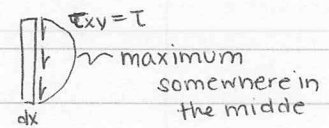 τxy = τ
maximum
somewhere in
the midde
dx